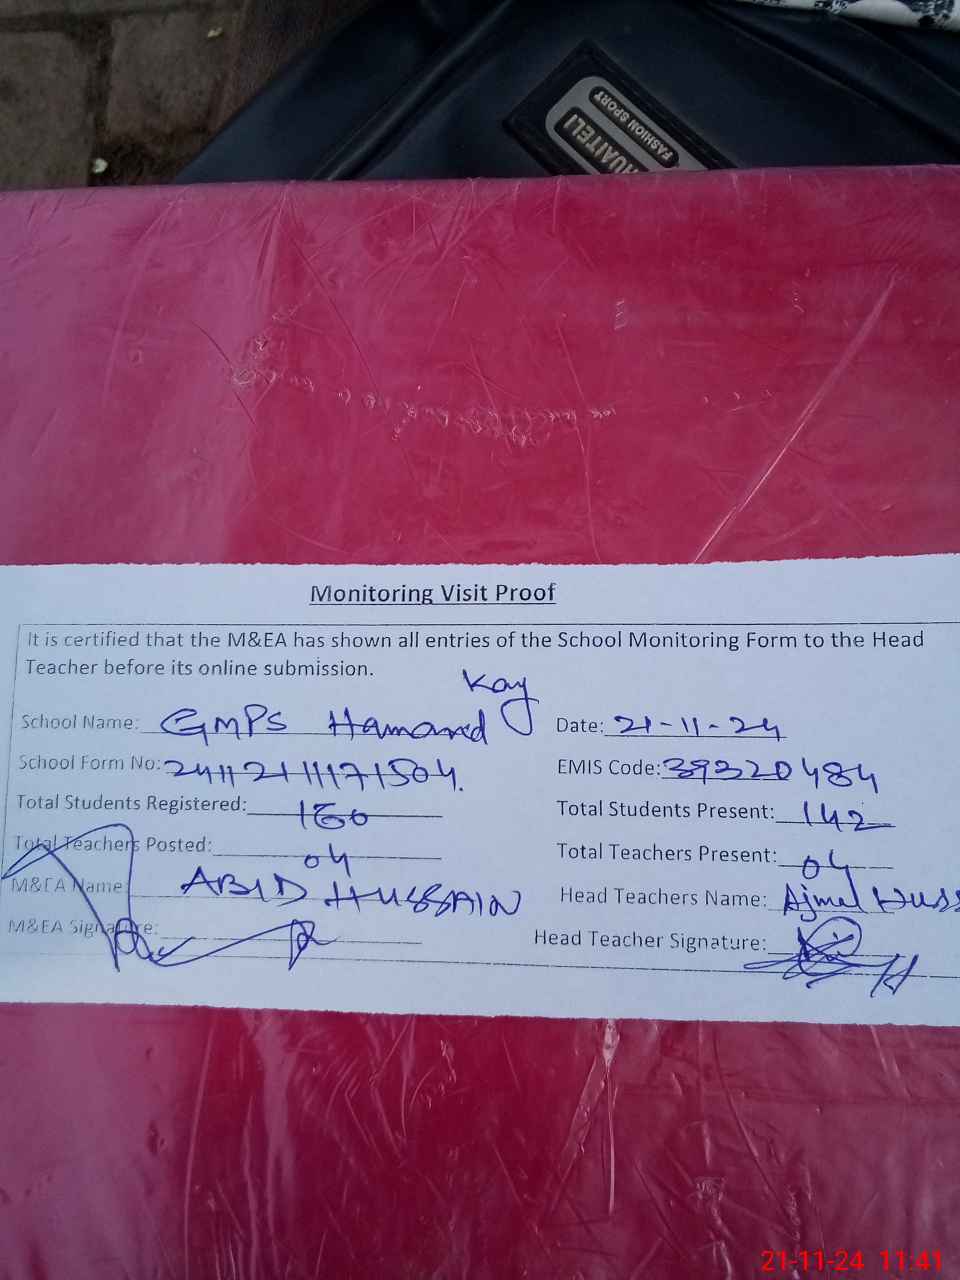 FASHION SPORT
HUAITELI
Monitoring Visit Proof
It is certified that the M&EA has shown all entries of the School Monitoring Form to the Head
Teacher before its online submission.
Kay
School Name: GMPS Hamand Date: 21-11-24
School Form No: EMIS Code: 39320484
Total Students Registered: 160 Total Students Present: 142
Total Teachers Posted: 04 Total Teachers Present: 04
M&EA Name: ABID HUSSAIN Head Teachers Name: Ajmal Huss
M&EA Signature: Head Teacher Signature:
21-11-24 11:41